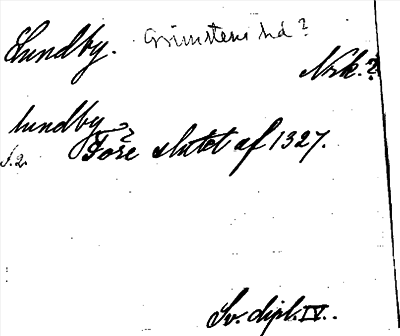 Lundby. Grimstens hd?
Nrk.?
lundby
s. 2. Före slutet af 1327.
Sv. dipl. IV.